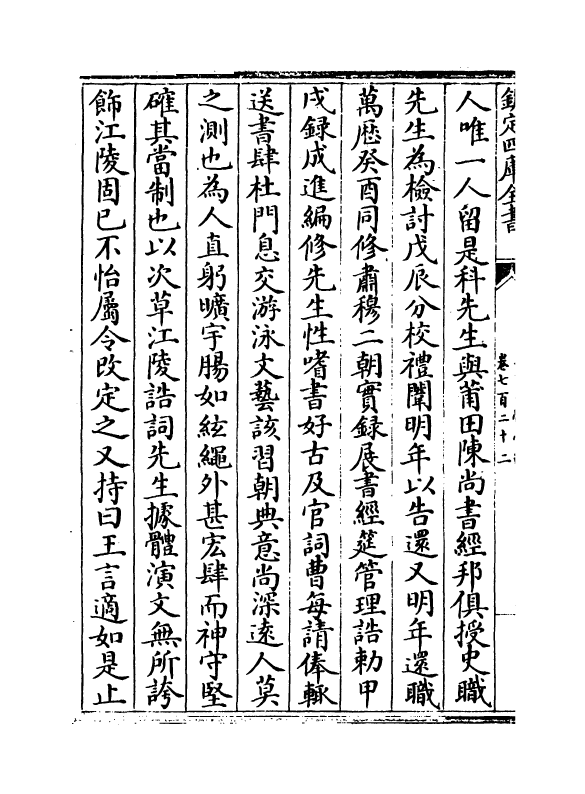 欽定四庫全書
卷七百二十二
人唯一人留是科先生與莆田陳尚書經邦俱授史職
先生為檢討戊辰分校禮闈明年以告還又明年還職
萬歴癸酉同修肅穆二朝實録展書經筵管理誥勅甲
戌録成進編修先生性嗜書好古及官詞曹每請俸輒
送書肆杜門息交游泳文藝該習朝典意尚深逺人莫
之測也為人直躬曠宇腸如絃繩外甚宏肆而神守堅
確其當制也以次草江陵誥詞先生據體演文無所誇
飾江陵固已不怡屬令改定之又持曰王言適如是止